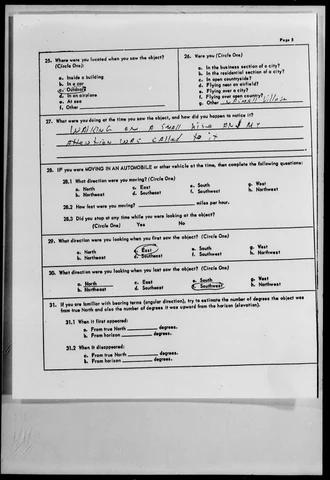 Page 2
25. Where were you located when you saw the object?
(Circle One):
a. Inside a building
b. In a car
c. Outdoors
d. In an airplane
e. At sea
f. Other
26. Were you (Circle One)
a. In the business section of a city?
b. In the residential section of a city?
c. In open countryside?
d. Flying near an airfield?
e. Flying over a city?
f. Flying over open country?
g. Other Small Village
27. What were you doing at the time you saw the object, and how did you happen to notice it?
WALKING ON A SMALL AND MY
ATTENTION WAS CALLED TO IT
28. IF you were MOVING IN AN AUTOMOBILE or other vehicle at the time, then complete the following questions:
28.1 What direction were you moving? (Circle One)
a. North c. East e. South g. West
b. Northeast d. Southeast f. Southwest h. Northwest
28.2 How fast were you moving? miles per hour.
28.3 Did you stop at any time while you were looking at the object?
(Circle One) Yes No
29. What direction were you looking when you first saw the object? (Circle One)
a. North c. East e. South g. West
b. Northeast d. Southeast f. Southwest h. Northwest
30. What direction were you looking when you last saw the object? (Circle One)
a. North c. East e. South g. West
b. Northeast d. Southeast f. Southwest h. Northwest
31. If you are familiar with bearing terms (angular direction), try to estimate the number of degrees the object was
from true North and also the number of degrees it was upward from the horizon (elevation).
31.1 When it first appeared:
a. From true North degrees.
b. From horizon degrees.
31.2 When it disappeared:
a. From true North degrees.
b. From horizon degrees.